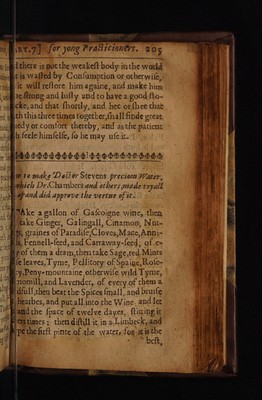 ART.7] for yong Practitioners. 205
there is not the weakest body in the world
is wasted by Consumption or otherwise,
it will restore him againe, and make him
be strong and lusty and to have a good sto-
cke, and that shortly, and hee or shee that
th this three times together, shall finde great
edy or comfort thereby, and as the patient
h feele himselfe, so he may use it.
to make Doctor Stevens precious Water,
which Dr. Chambers and others, made tryall
of and did approve the vertue of it.
Ake a gallon of Gascoigne wine, then
take Ginger, Galingall, Cinamon, Nut-
s, graines of Paradise, Cloves, Mace, Anni-
s, Fennell-seed, and Carraway-seed, of e-
y of them a dram, then take Sage, red Mints
se leaves, Tyme, Pellitory of Spaine, Rose-
ry, Peny-mountaine otherwise wild Tyme,
momill, and Lavender, of every of them a
dfull, then beat the Spices small, and bruise
hearbes, and put all into the Wine and let
and the space of twelve dayes, stiring it
ers times; then distill it in a Limbeck, and
pe the first pinte of the water, for it is the
best,